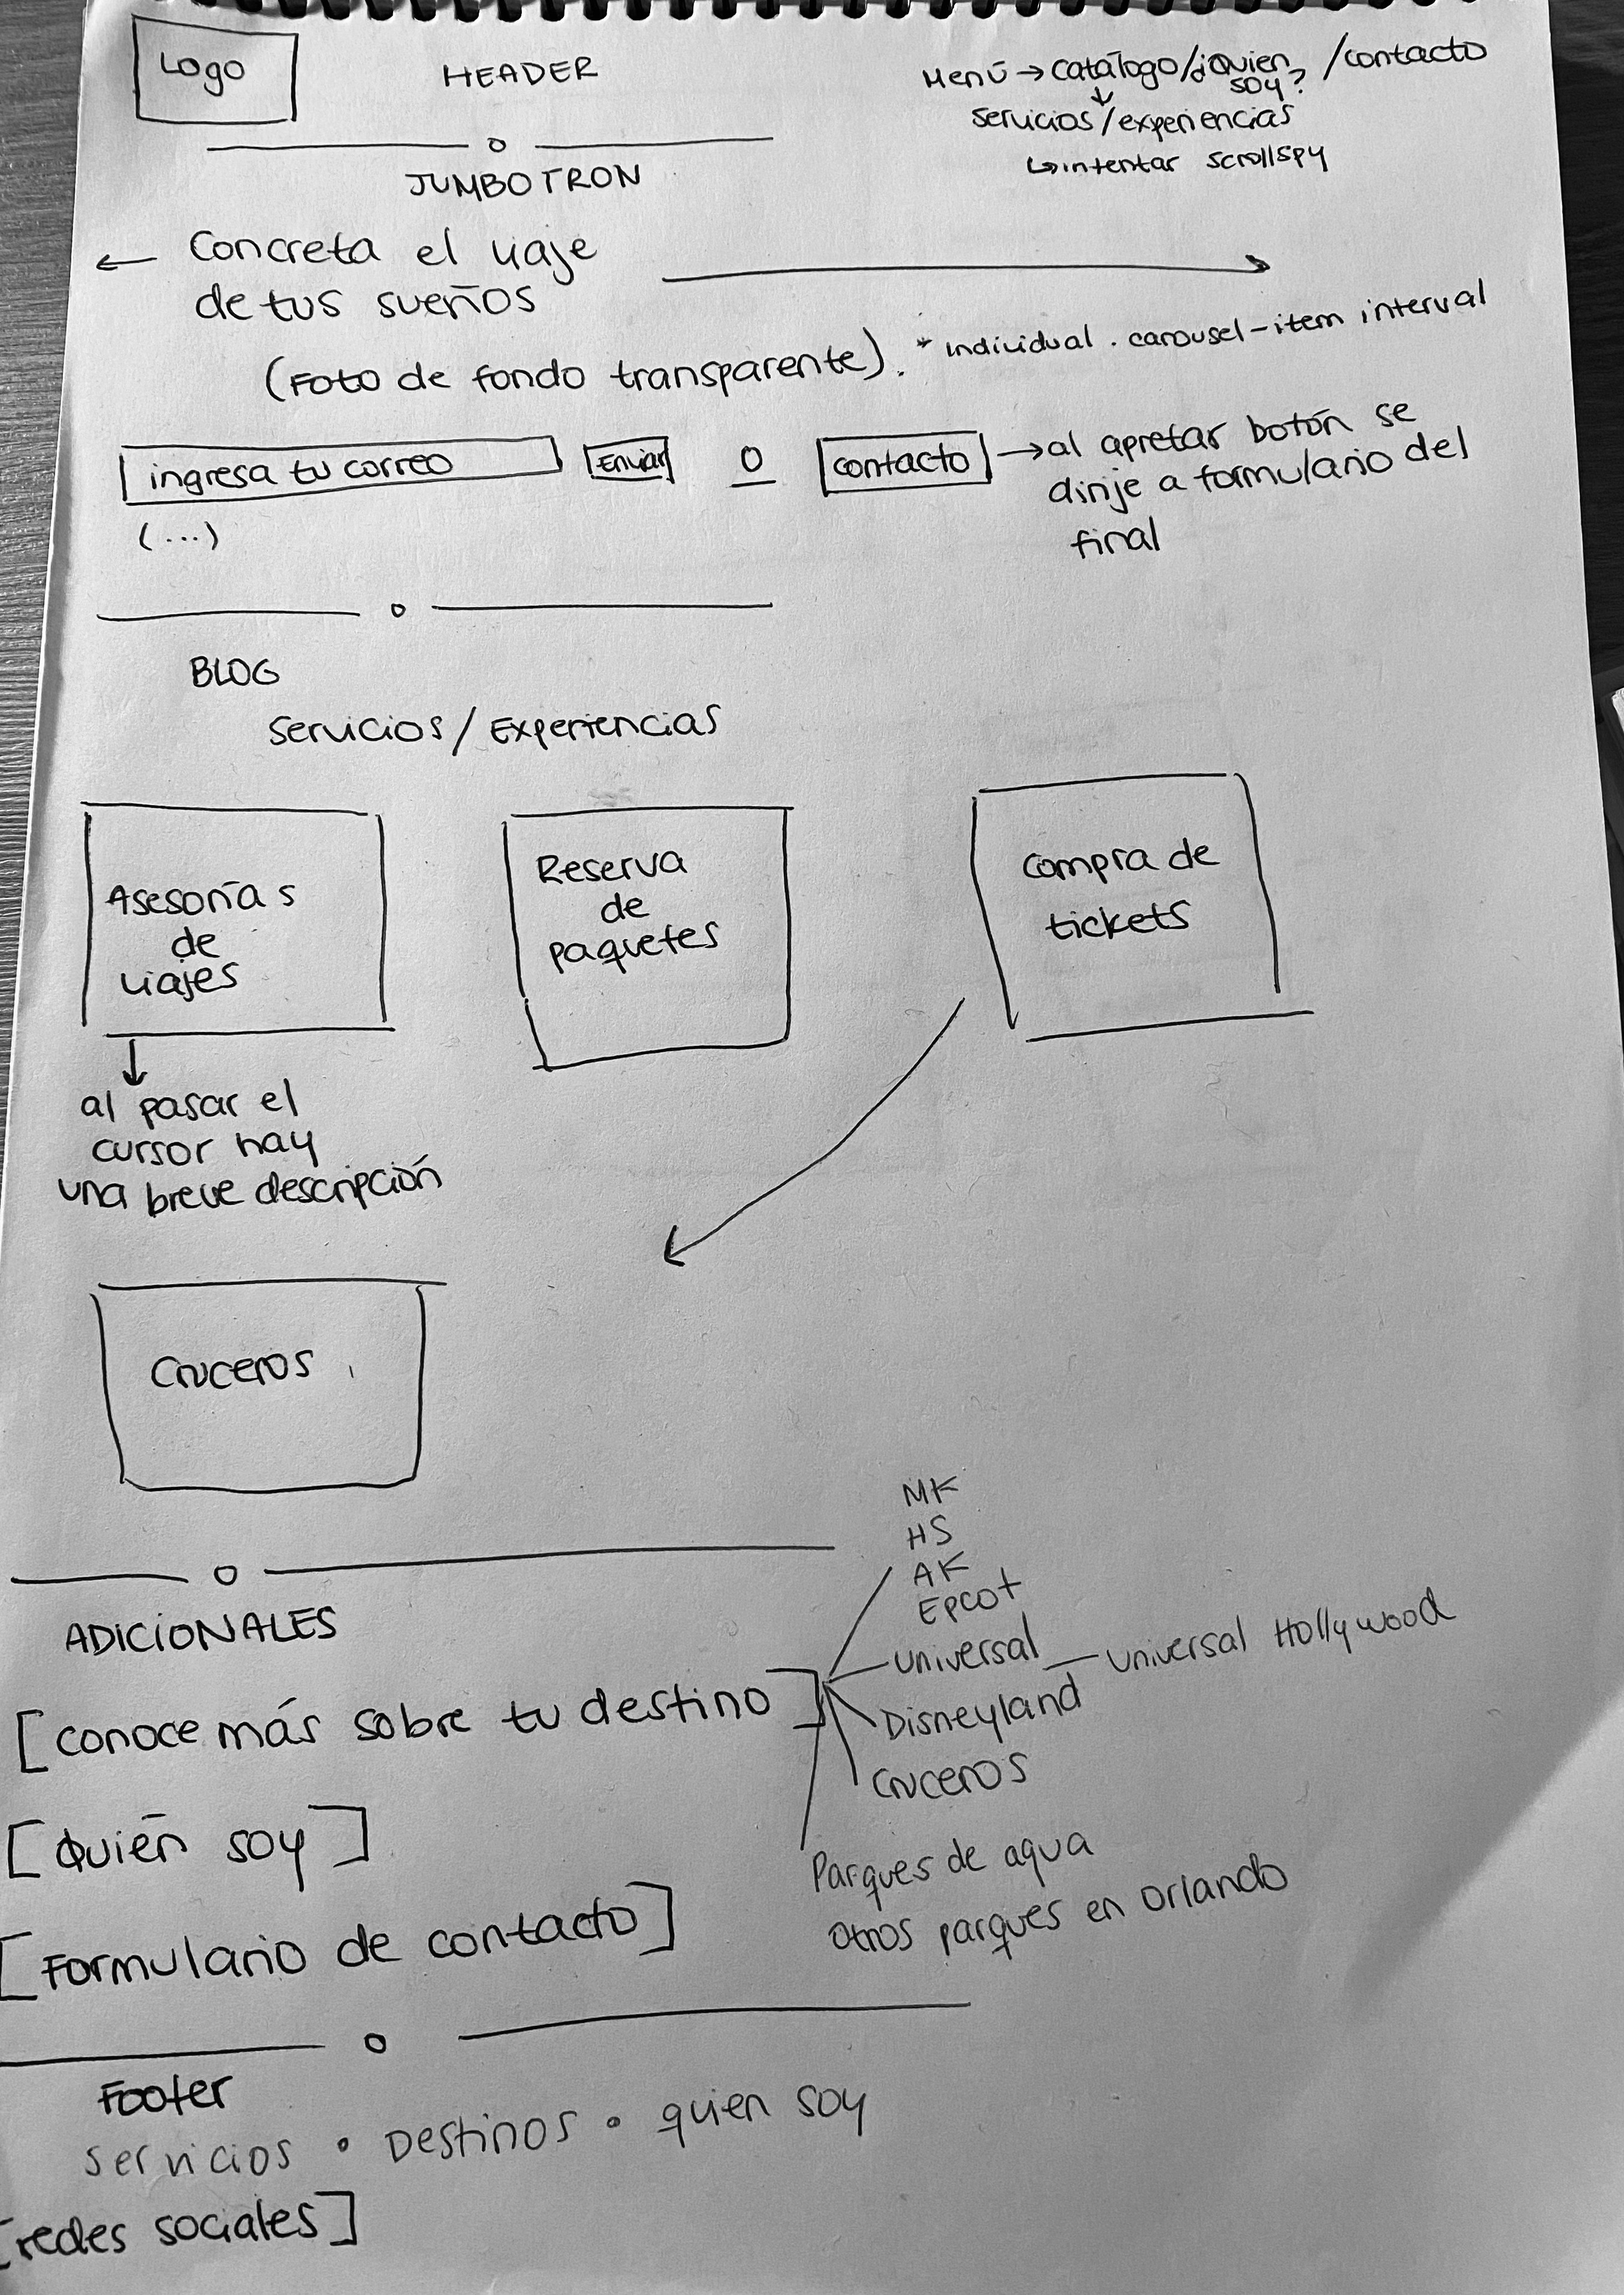 Logo
HEADER
Menú → Catálogo/¿Quien soy? /contacto
↓
servicios/experiencias
↳ intentar scrollspy
JUMBOTRON
← Concreta el viaje
de tus sueños
(Foto de fondo transparente). * individual .carousel-item interval
ingresa tu correo
Enviar
O
contacto
→ al apretar botón se
dirije a formulario del
final
(...)
BLOG
Servicios/Experiencias
Asesorías
de
viajes
Reserva
de
paquetes
compra de
tickets
al pasar el
cursor hay
una breve descripción
Cruceros
MK
HS
AK
Epcot
Universal — Universal Hollywood
Disneyland
Cruceros
Parques de agua
otros parques en Orlando
ADICIONALES
[conoce más sobre tu destino]
[Quién soy]
[Formulario de contacto]
Footer
servicios • Destinos • quien soy
[redes sociales]